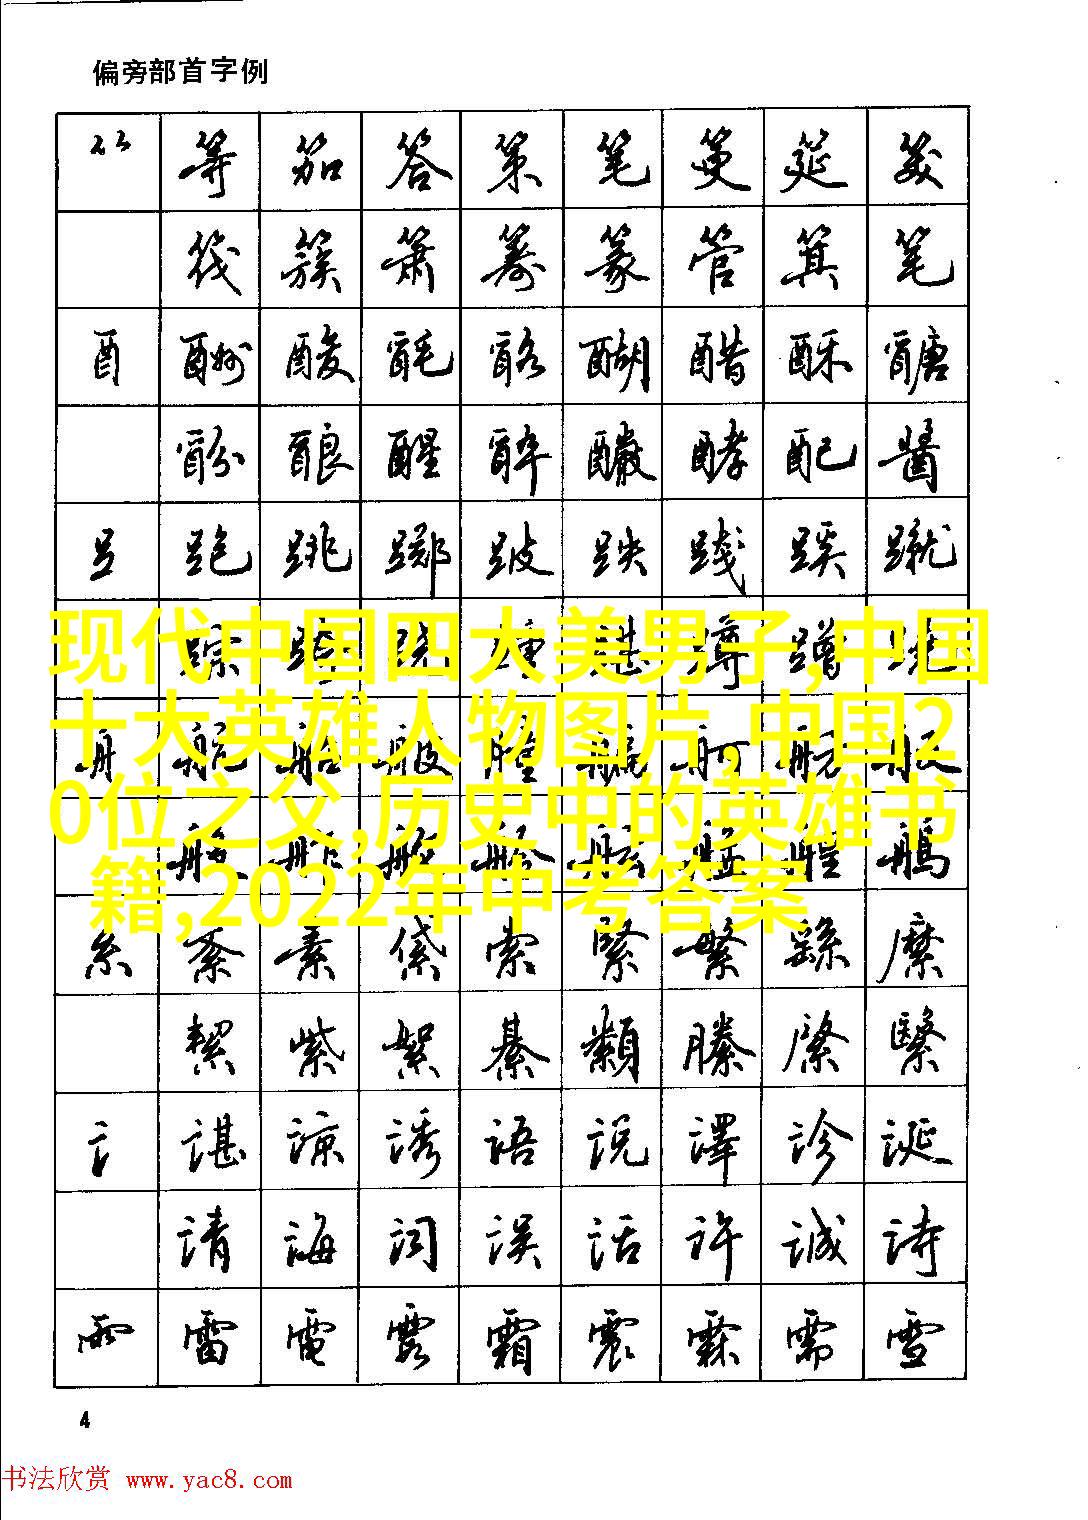 偏旁部首字例
⺮ 等 笳 答 策 笔 筵
筏 簇 箫 筹 篆 管 箕 笔
酉 酬 酸 酕 酩 醐 醋 酥 醣
酚 酿 醒 醉 酽 酵 配 酱
𧾷 跑 跳 踯 跛 跌 践 蹊 蹴
踪 蹲 蹭
舟 航 船 艘
艇
糸 紊 素 袋 索 紧 繁 繇 縻
絜 紫 絮 綦 縢 綮 繄
讠 谌 谅 诱 语 说 譯 诊 诞
请 诲 词 误 话 许 诚 诗
雨 雷 電 露 霜 震 霖 需 雪
现代中国四大美男子,中国
十大英雄人物图片,中国2
0位之父,历史中的英雄书
籍,2022年中考答案
4
书法欣赏 www.yac8.com